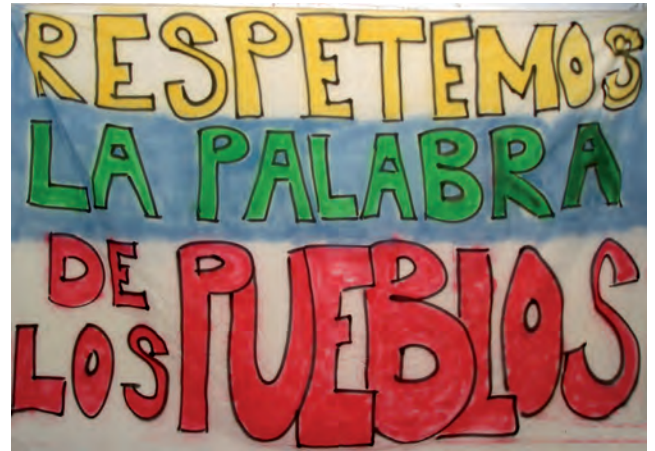 RESPETEMOS
LA PALABRA
DE
LOS PUEBLOS